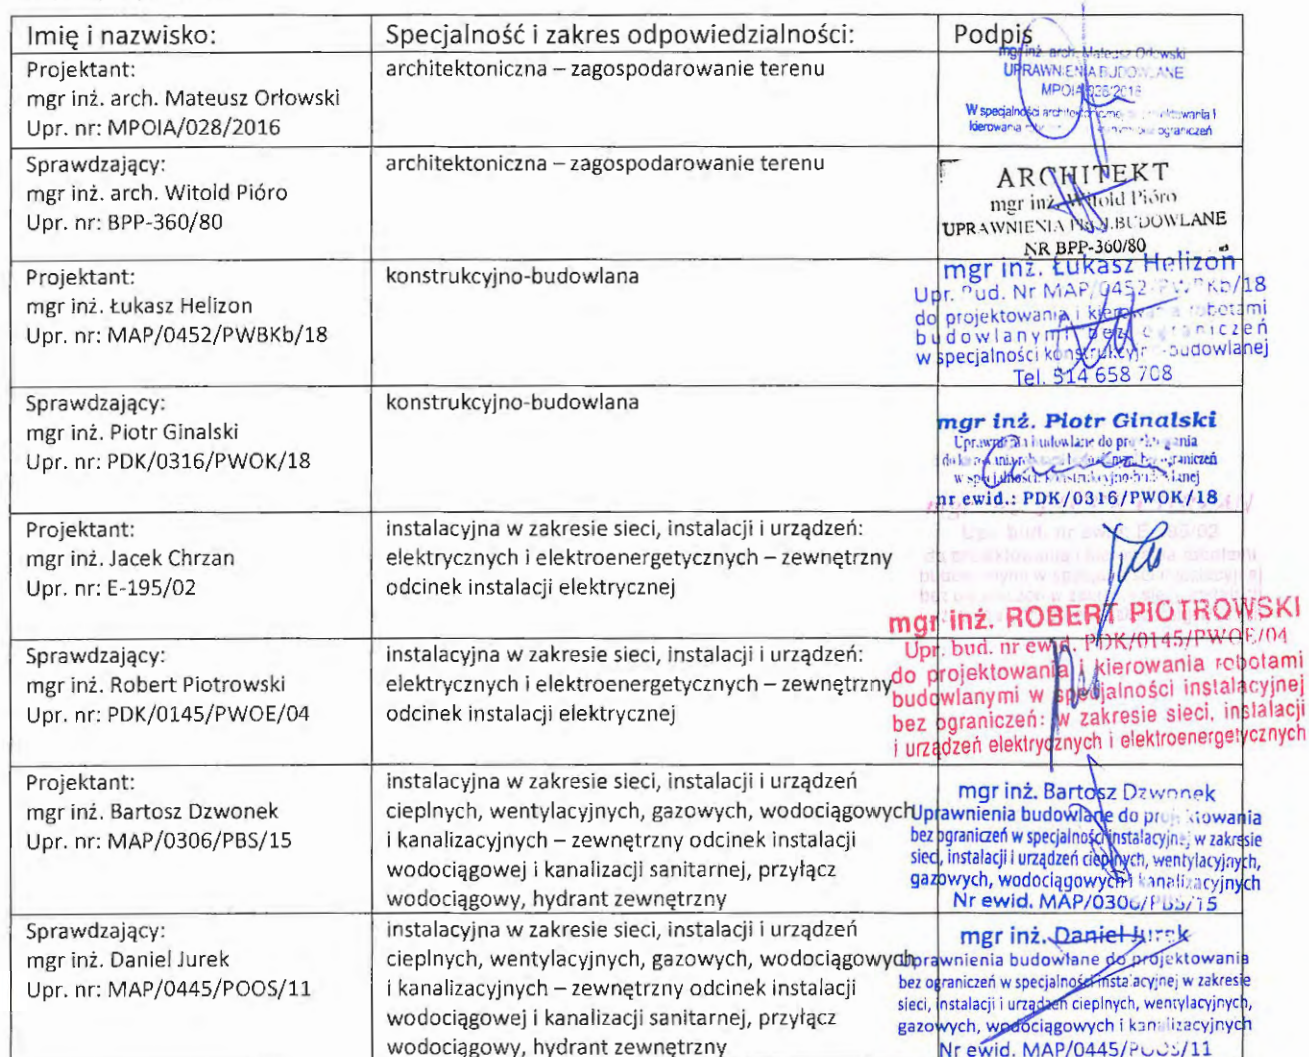 Imię i nazwisko:
Specjalność i zakres odpowiedzialności:
Podpis
Projektant:
mgr inż. arch. Mateusz Orłowski
Upr. nr: MPOIA/028/2016
architektoniczna – zagospodarowanie terenu
mgr inż. arch. Mateusz Orłowski
UPRAWNIENIA BUDOWLANE
MPOIA/028/2016
W specjalności architektonicznej do projektowania i
kierowania ograniczeń
Sprawdzający:
mgr inż. arch. Witold Pióro
Upr. nr: BPP-360/80
architektoniczna – zagospodarowanie terenu
ARCHITEKT
mgr inż. Witold Pióro
UPRAWNIENIA BUDOWLANE
NR BPP-360/80
Projektant:
mgr inż. Łukasz Helizon
Upr. nr: MAP/0452/PWBKb/18
konstrukcyjno-budowlana
mgr inż. Łukasz Helizon
Upr. Bud. Nr MAP/0452/PWBKb/18
do projektowania i kierowania robotami
budowlanymi bez ograniczeń
w specjalności konstrukcyjno-budowlanej
Tel. 514 658 708
Sprawdzający:
mgr inż. Piotr Ginalski
Upr. nr: PDK/0316/PWOK/18
konstrukcyjno-budowlana
mgr inż. Piotr Ginalski
Uprawnienia budowlane do projektowania
ograniczeń
w specjalności konstrukcyjno-budowlanej
nr ewid.: PDK/0316/PWOK/18
Projektant:
mgr inż. Jacek Chrzan
Upr. nr: E-195/02
instalacyjna w zakresie sieci, instalacji i urządzeń:
elektrycznych i elektroenergetycznych – zewnętrzny
odcinek instalacji elektrycznej
Sprawdzający:
mgr inż. Robert Piotrowski
Upr. nr: PDK/0145/PWOE/04
instalacyjna w zakresie sieci, instalacji i urządzeń:
elektrycznych i elektroenergetycznych – zewnętrzny
odcinek instalacji elektrycznej
mgr inż. ROBERT PIOTROWSKI
Upr. bud. nr ewid. PDK/0145/PWOE/04
do projektowania i kierowania robotami
budowlanymi w specjalności instalacyjnej
bez ograniczeń: w zakresie sieci, instalacji
i urządzeń elektrycznych i elektroenergetycznych
Projektant:
mgr inż. Bartosz Dzwonek
Upr. nr: MAP/0306/PBS/15
instalacyjna w zakresie sieci, instalacji i urządzeń
cieplnych, wentylacyjnych, gazowych, wodociągowych
i kanalizacyjnych – zewnętrzny odcinek instalacji
wodociągowej i kanalizacji sanitarnej, przyłącz
wodociągowy, hydrant zewnętrzny
mgr inż. Bartosz Dzwonek
Uprawnienia budowlane do projektowania
bez ograniczeń w specjalności instalacyjnej w zakresie
sieci, instalacji i urządzeń cieplnych, wentylacyjnych,
gazowych, wodociągowych i kanalizacyjnych
Nr ewid. MAP/0306/PBS/15
Sprawdzający:
mgr inż. Daniel Jurek
Upr. nr: MAP/0445/POOS/11
instalacyjna w zakresie sieci, instalacji i urządzeń
cieplnych, wentylacyjnych, gazowych, wodociągowych
i kanalizacyjnych – zewnętrzny odcinek instalacji
wodociągowej i kanalizacji sanitarnej, przyłącz
wodociągowy, hydrant zewnętrzny
mgr inż. Daniel Jurek
Uprawnienia budowlane do projektowania
bez ograniczeń w specjalności instalacyjnej w zakresie
sieci, instalacji i urządzeń cieplnych, wentylacyjnych,
gazowych, wodociągowych i kanalizacyjnych
Nr ewid. MAP/0445/POOS/11